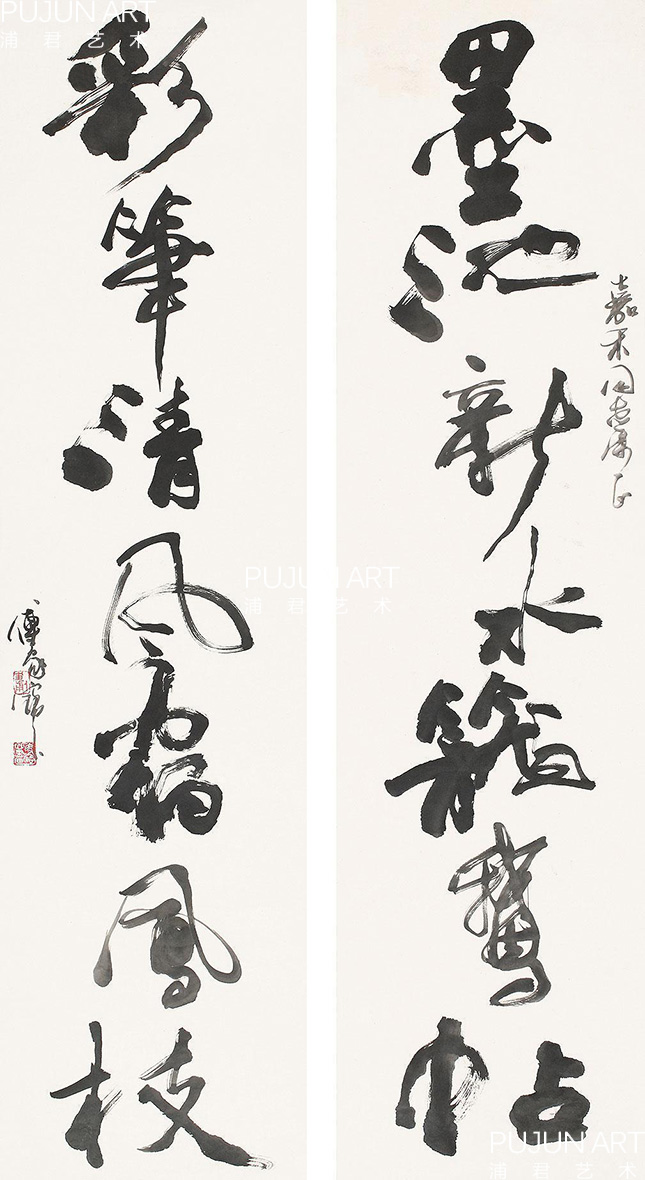 墨池新水籠鵝帖
嘉禾同志屬正
彩筆清風鳳枝
傅家寶
PUJUN ART
浦君艺术
PUJUN ART
浦君艺术
PUJUN ART
浦君艺术